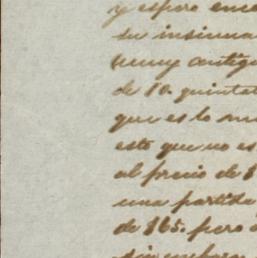 y espero
su insinua
muy antigu
de 10. quintal
que es lo m
este que no es
al precio de $
una partida
de $65. pero
sin embarg